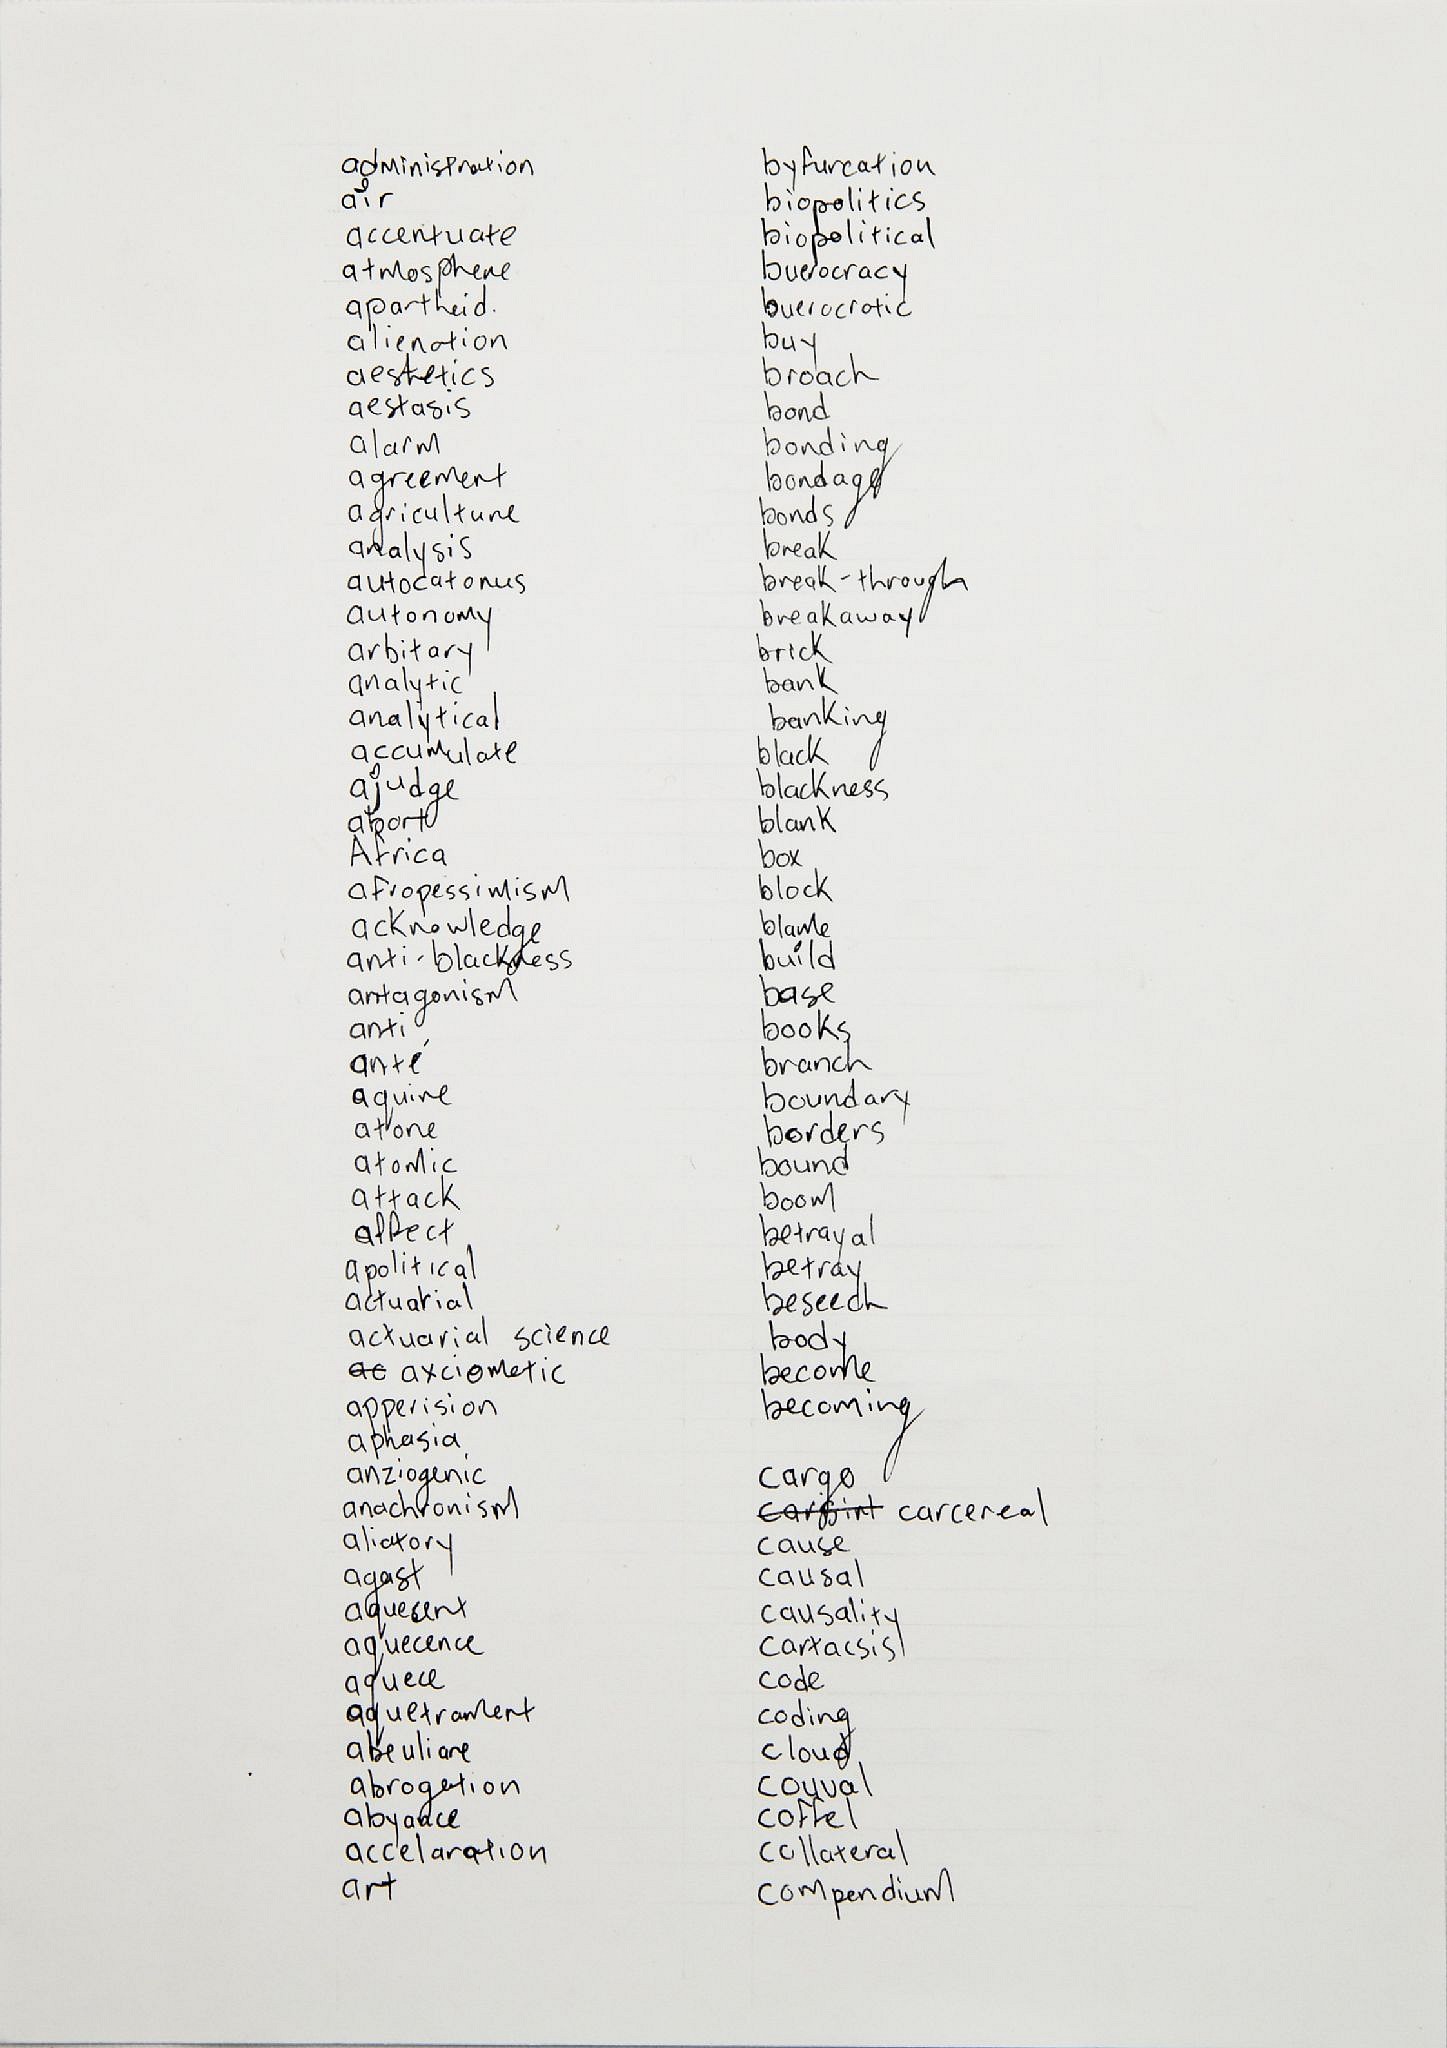 administration
air
accentuate
atmosphere
apartheid.
alienation
aesthetics
aestasis
alarm
agreement
agriculture
analysis
autocatonus
autonomy
arbitary
analytic
analytical
accumulate
ajudge
abort
Africa
afropessimism
acknowledge
anti-blackness
antagonism
anti
anté
aquire
atone
atomic
attack
affect
apolitical
actuarial
actuarial science
ac axciometic
apperision
aphasia
anziogenic
anachronism
aliatory
agast
aquecent
aquecence
aquece
aquetrament
abeuliare
abrogation
abyance
accelaration
art
byfurcation
biopolitics
biopolitical
buerocracy
buerocratic
buy
broach
bond
bonding
bondage
bonds
break
break-through
breakaway
brick
bank
banking
black
blackness
blank
box
block
blame
build
base
books
branch
boundary
borders
bound
boom
betrayal
betray
beseech
body
become
becoming
cargo
carcereal
cause
causal
causality
cartacsis
code
coding
cloud
couval
coffel
collateral
compendium